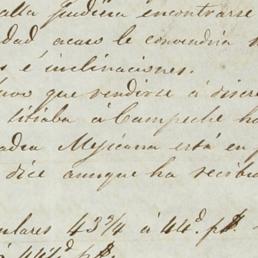 alla pudiera encontrarse
dad, acaso le convendria
s é inclinaciones.
tuvo que rendirse á discre
sitiaba á Campeche ha
adra Mejicana está en p
dice aunque ha recibi
ulares 43 3/4 á 44 p$
á 44 1/2 p$.